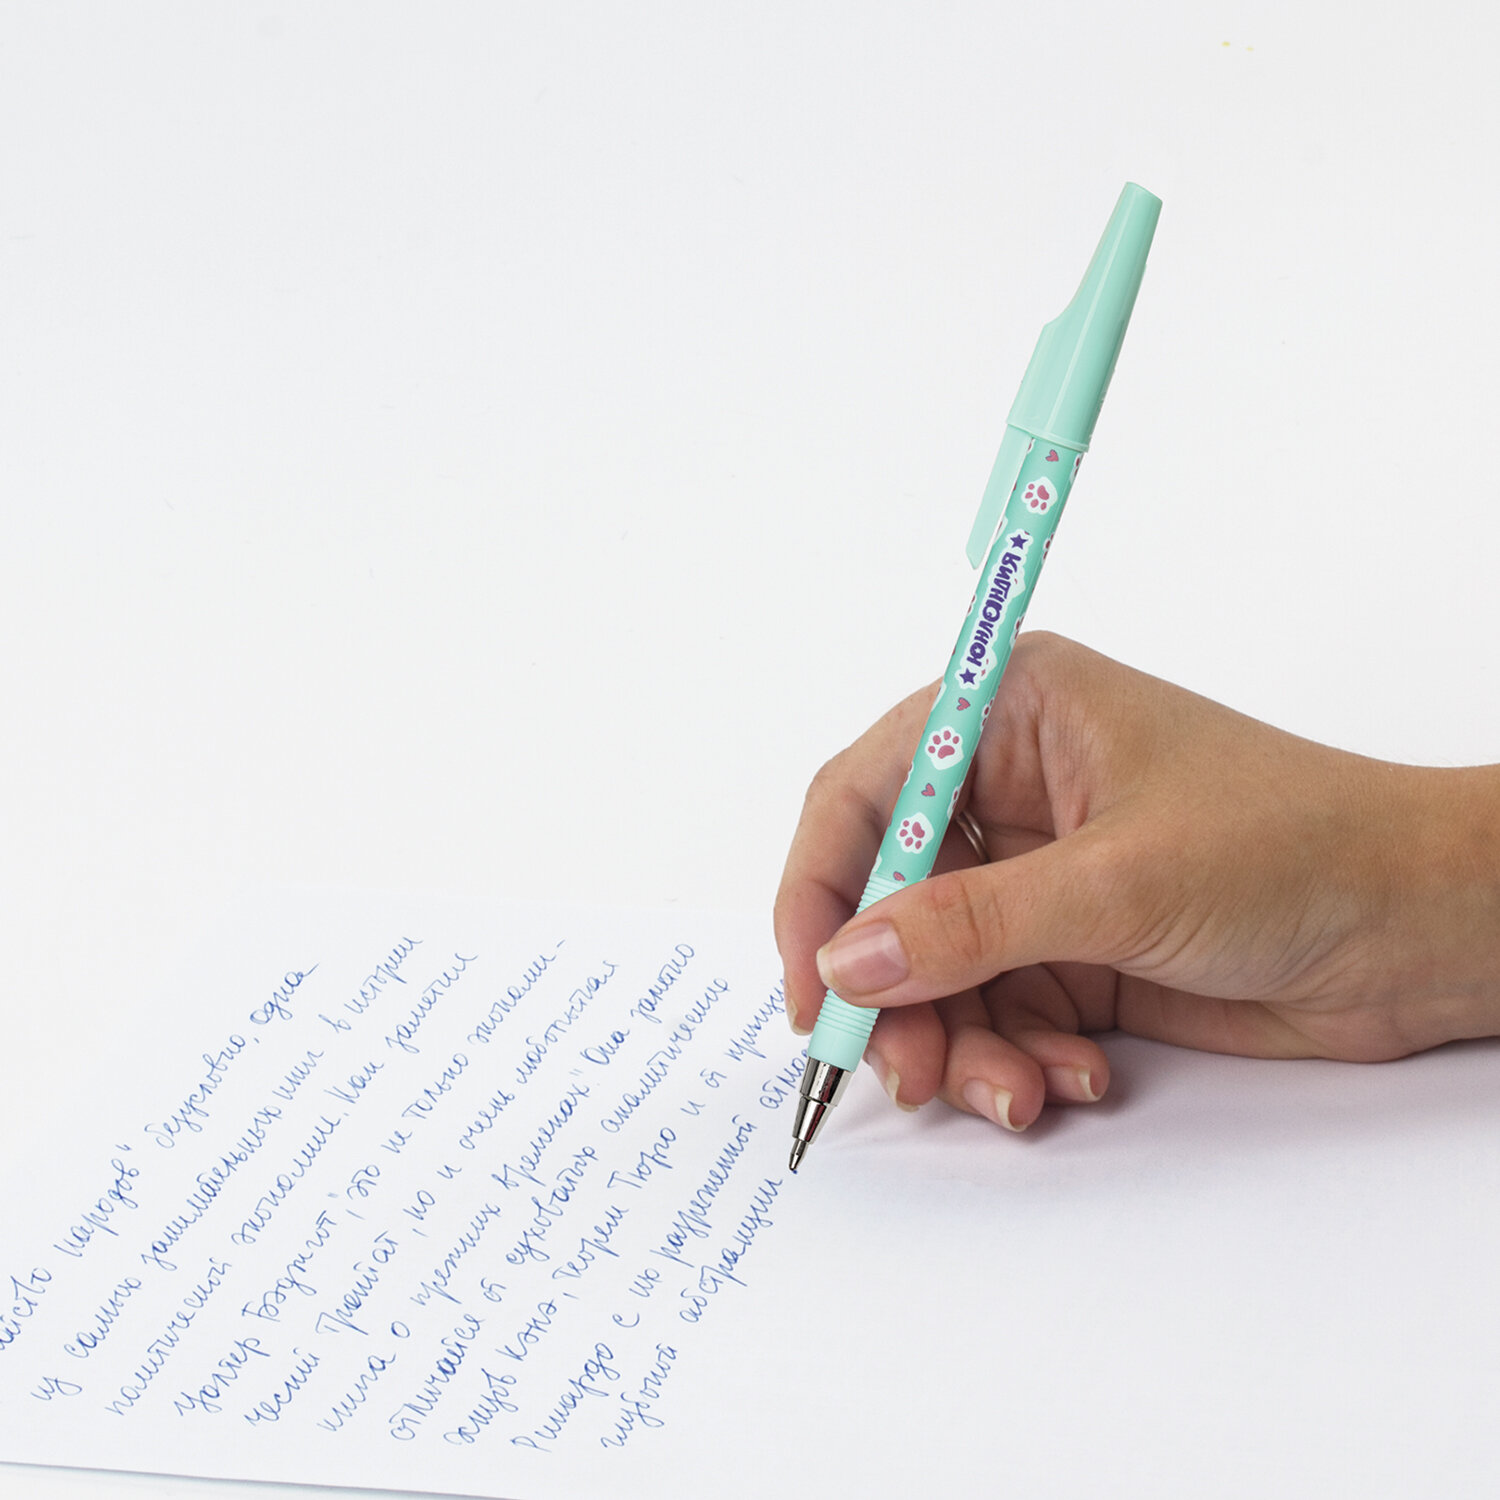 ЮНЛАНДИЯ
народов" безусловно, одна
из самых занимательных книг в истории
политической экономии. Как заметил
Уолтер Бэджгот, "это не только экономи-
ческий трактат, но и очень любопытная
книга о прежних временах". Она заметно
отличается от суховатых аналитических
Кэнэ, теорем Тюрго и от
Рикардо с их разреженной
глубокой абстракции